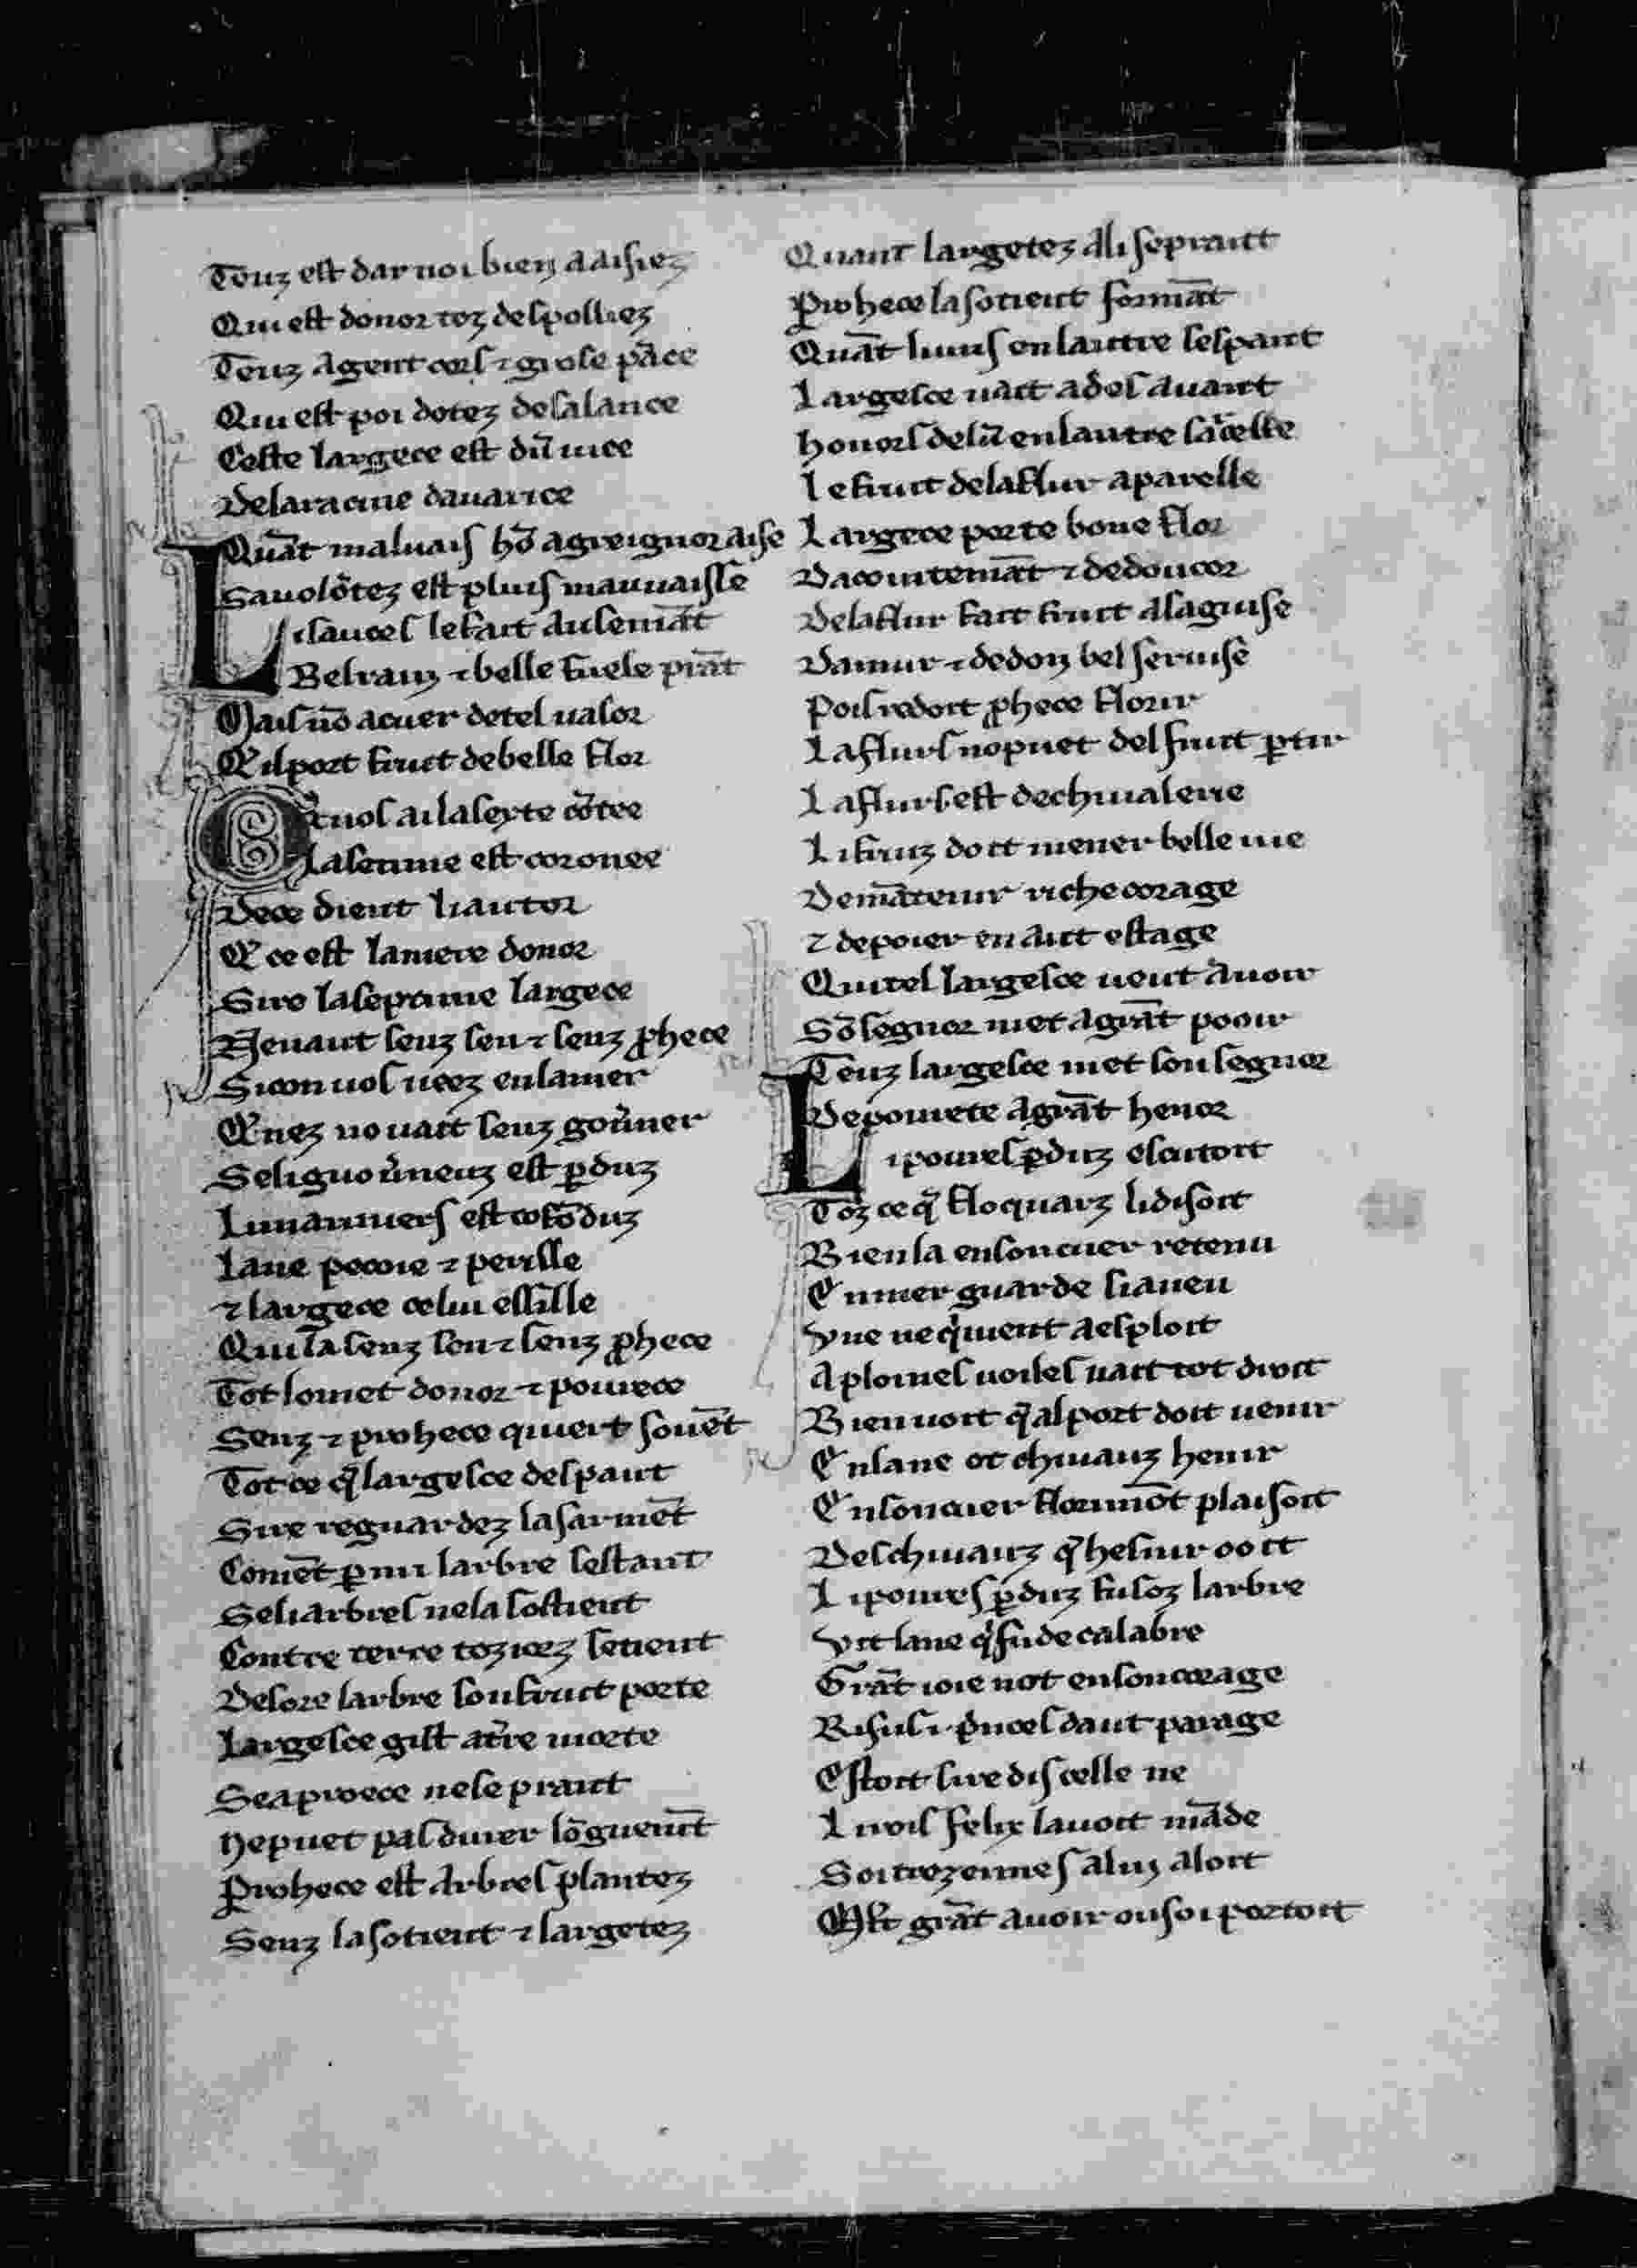 Teuz est dar noi bien aaisiez
Qui est donor toz despolliez
Teuz a gent cors ⁊ grosse pāce
Qui est poi dotez de sa lance
Ceste largece est dū uice
De la racine dauarice
Quāt maluais hō a greignor aise
Sa uolōtez est pluis mauuaisse
Li sauces se fait ausemāt
Bel raim ⁊ belle fuele prāt
Mais nō a cuer de tel ualor
Q'il port fruit de belle flor
Or uos ai la seste cōtee
La semme est coronee
De ce dient li autor
Q' ce est la miere donor
Sire la septime largece
Ne uaut senz sen ⁊ senz ꝓhece
Si con uos ueez en la mer
Q' nez no uait senz gou'ner
Se li guou'neuz est ꝑduz
Li mariniers est cōfōduz
La ne pecoie ⁊ perille
⁊ largece celui essille
Qui la senz sen ⁊ senz ꝓhece
Tot lo met donor ⁊ pourece
Senz ⁊ prohece quiert souēt
Tot ce q̄ largesce despant
Sire reguardez la sarmēt
Comēt ꝑmi larbre sestant
Se li arbres ne la sostient
Contre terre toz iorz se tient
Desore larbre son fruit porte
Largesce gist a t're morte
Se a proece ne se prant
Ne puet pas durer lōguemt̄
Prohece est arbres plantez
Senz la sotient ⁊ largetez
Quant largetez a li se praint
Prohece la sotient formāt
Quāt li uns en lautre sespant
Largesce uait ades auant
Honors de lū en lautre sācelle
Le fruit de la flur aparelle
Largece porte bone flor
Dacointemāt ⁊ de doucor
De la flur fait fruit a sa guise
Damur ⁊ de don bel seruise
Pois redoit ꝓhece florir
La flurs no puet del fruit ꝑtir
La flurs est de chiualerie
Li fruiz doit mener belle uie
De mātenir riche corage
⁊ de poier en aut estage
Qui tel largesce ueut auoir
Sō segnor met a grāt pooir
Teuz largesce met son segnor
De pourete a grāt henor
Li poures ꝑduz escoutoit
Toz ce q̄ floquarz li disoit
Bien la en son cuer retenu
En mer guarde si a ueu
Vne ne q'uient a esploit
A ploines uoiles uait tot droit
Bien uoit q̄ al port doit uenir
En la ne ot chiuauz henir
En son cuer florimōt plaisoit
Des chiuauz q̄ hesnir ooit
Li poures ꝑduz fu soz larbre
Vit la ne q' fu de calabre
Grāt ioie not en son corage
Risus .i. p'nces daut parage
Estoit sire discelle ne
Li rois felix lauoit māde
Soi trezennes a lui aloit
Mlt grāt auoir o soi portoit